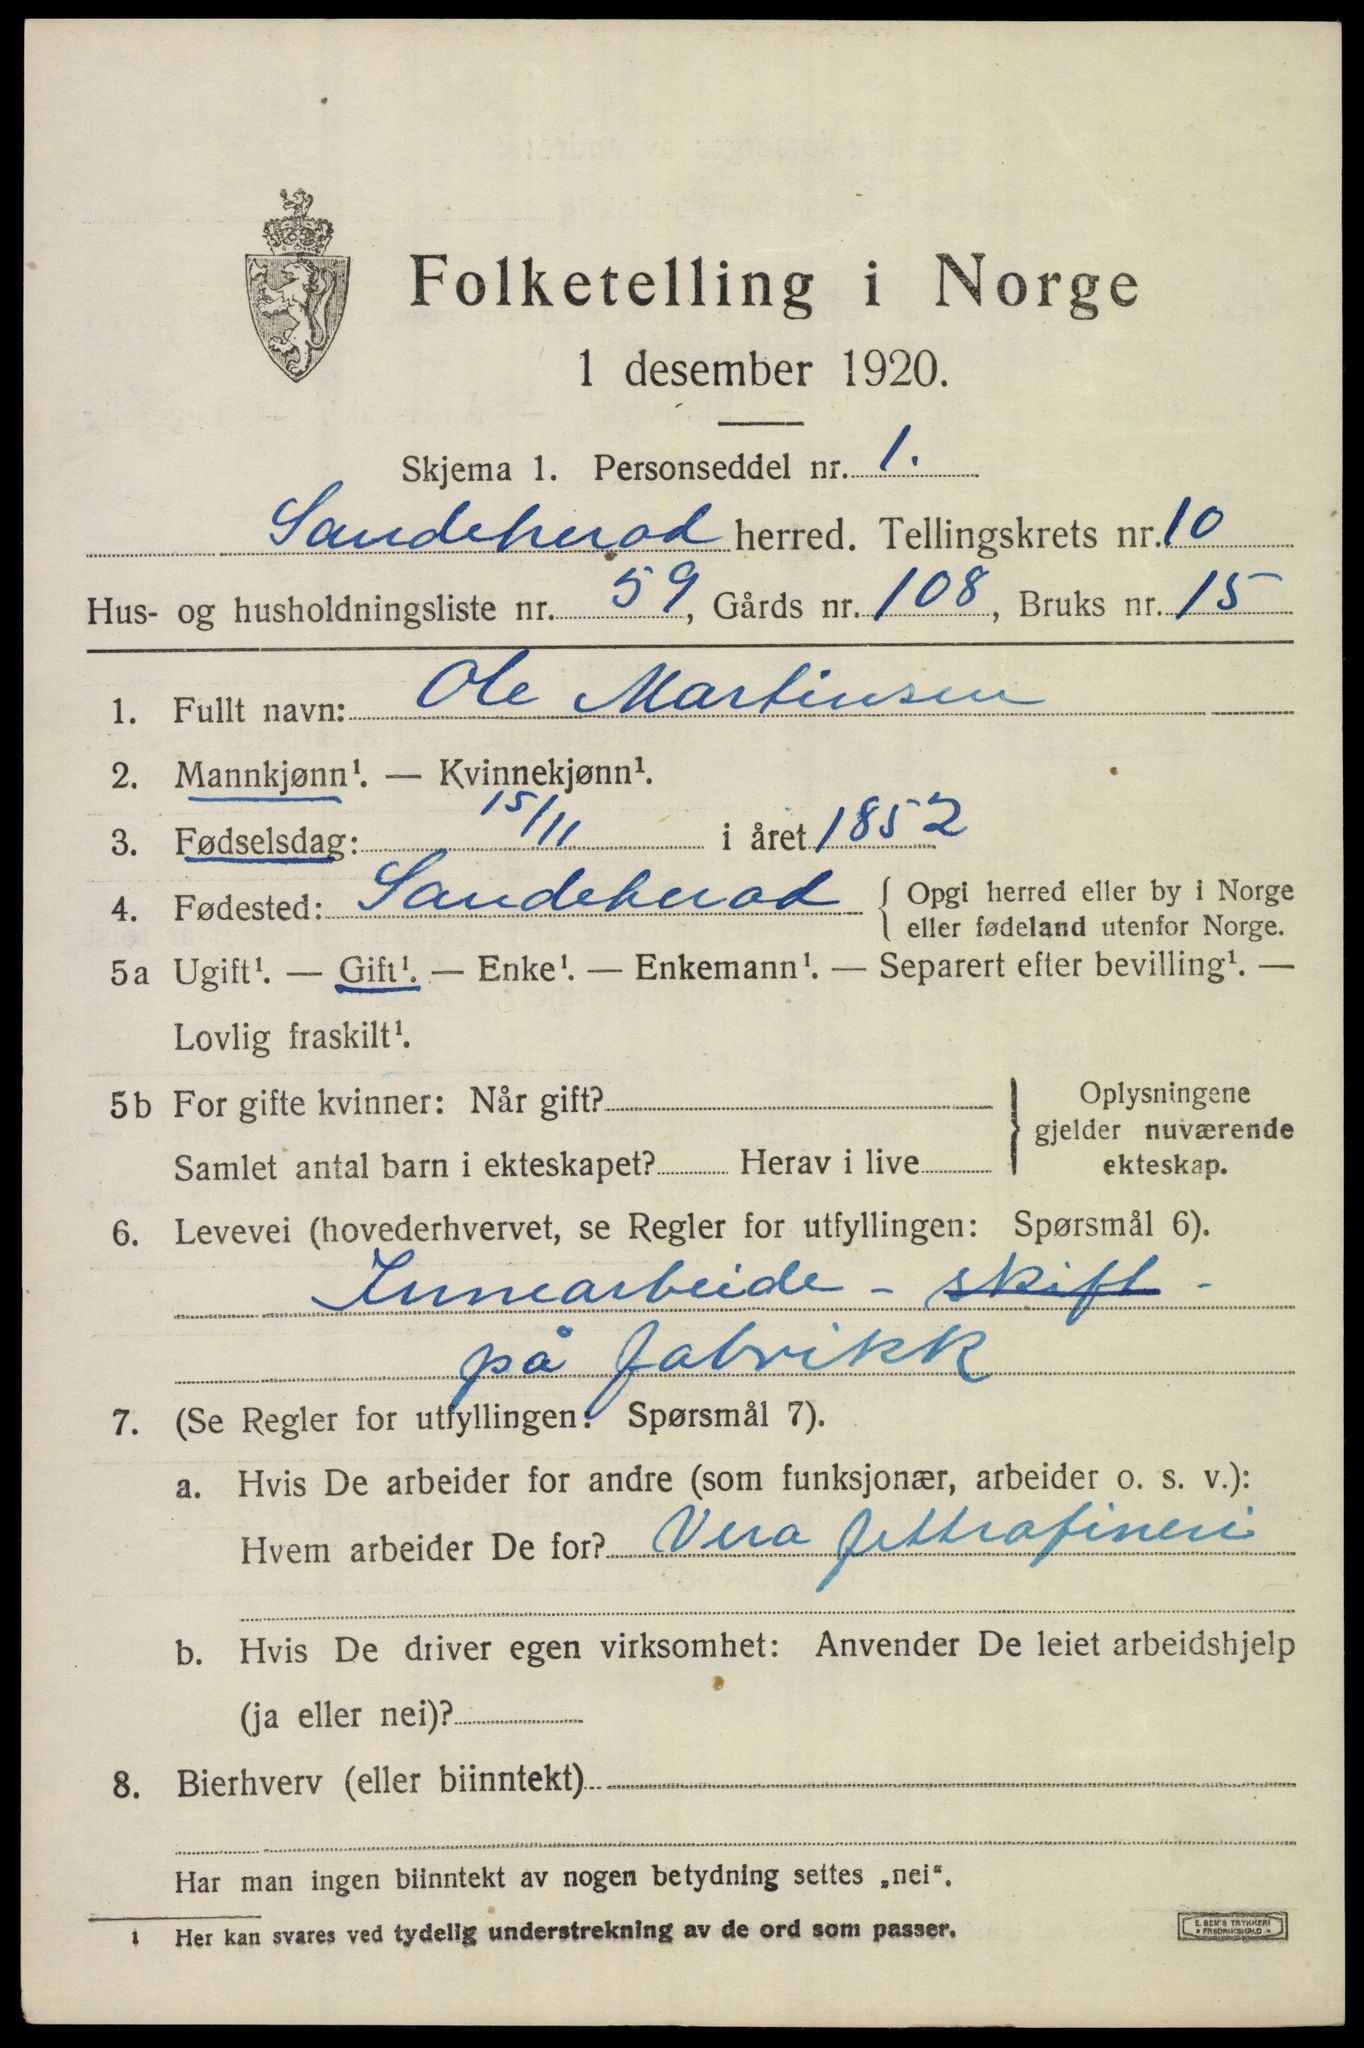 Folketelling i Norge
1 desember 1920.
Skjema 1. Personseddel nr. 1.
Sandeherad herred. Tellingskrets nr. 10
Hus- og husholdningsliste nr. 59, Gårds nr. 108, Bruks nr. 15
1. Fullt navn: Ole Martinsen
2. Mannkjønn¹. — Kvinnekjønn¹.
3. Fødselsdag: 15/11 i året 1852
4. Fødested: Sandeherad { Opgi herred eller by i Norge
eller fødeland utenfor Norge.
5a Ugift¹. — Gift¹. — Enke¹. — Enkemann¹. — Separert efter bevilling¹. —
Lovlig fraskilt¹.
5b For gifte kvinner: Når gift? } Oplysningene
gjelder nuværende
Samlet antal barn i ekteskapet? Herav i live ekteskap.
6. Levevei (hovederhvervet, se Regler for utfyllingen: Spørsmål 6).
Innearbeide - skift -
på fabrikk
7. (Se Regler for utfyllingen: Spørsmål 7).
a. Hvis De arbeider for andre (som funksjonær, arbeider o. s. v.):
Hvem arbeider De for? Vera fettrafineri
b. Hvis De driver egen virksomhet: Anvender De leiet arbeidshjelp
(ja eller nei)?
8. Bierhverv (eller biinntekt)
Har man ingen biinntekt av nogen betydning settes „nei“.
1 Her kan svares ved tydelig understrekning av de ord som passer.
E. SEM'S TRYKKERI
* FREDRIKSHALD *